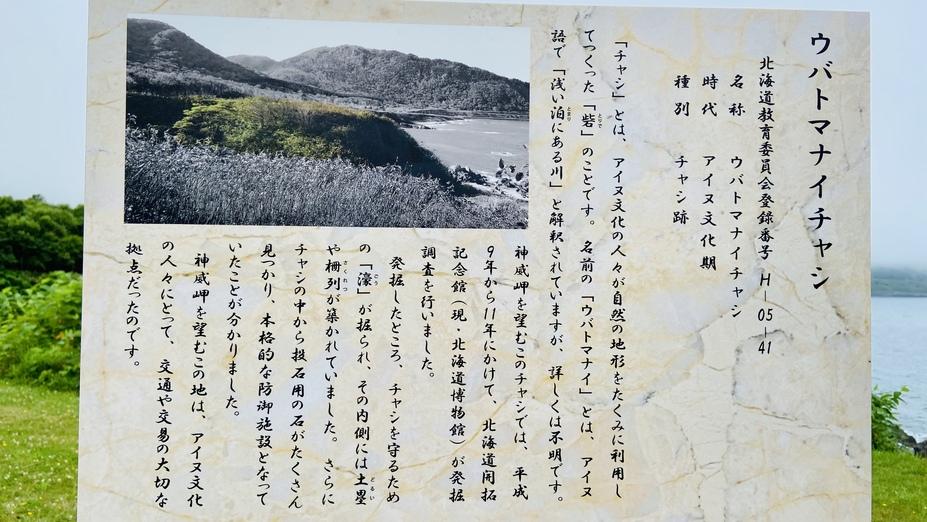 ウバトマナイチャシ
北海道教育委員会登録番号 H－05－41
名称 ウバトマナイチャシ
時代 アイヌ文化期
種別 チャシ跡
「チャシ」とは、アイヌ文化の人々が自然の地形をたくみに利用し
てつくった「砦」のことです。名前の「ウバトマナイ」とは、アイヌ
語で「浅い泊にある川」と解釈されていますが、詳しくは不明です。
神威岬を望むこのチャシでは、平成
9年から11年にかけて、北海道開拓
記念館(現・北海道博物館)が発掘
調査を行いました。
発掘したところ、チャシを守るため
の「濠」が掘られ、その内側には土塁
や柵列が築かれていました。さらに
チャシの中から投石用の石がたくさん
見つかり、本格的な防御施設となって
いたことが分かりました。
神威岬を望むこの地は、アイヌ文化
の人々にとって、交通や交易の大切な
拠点だったのです。